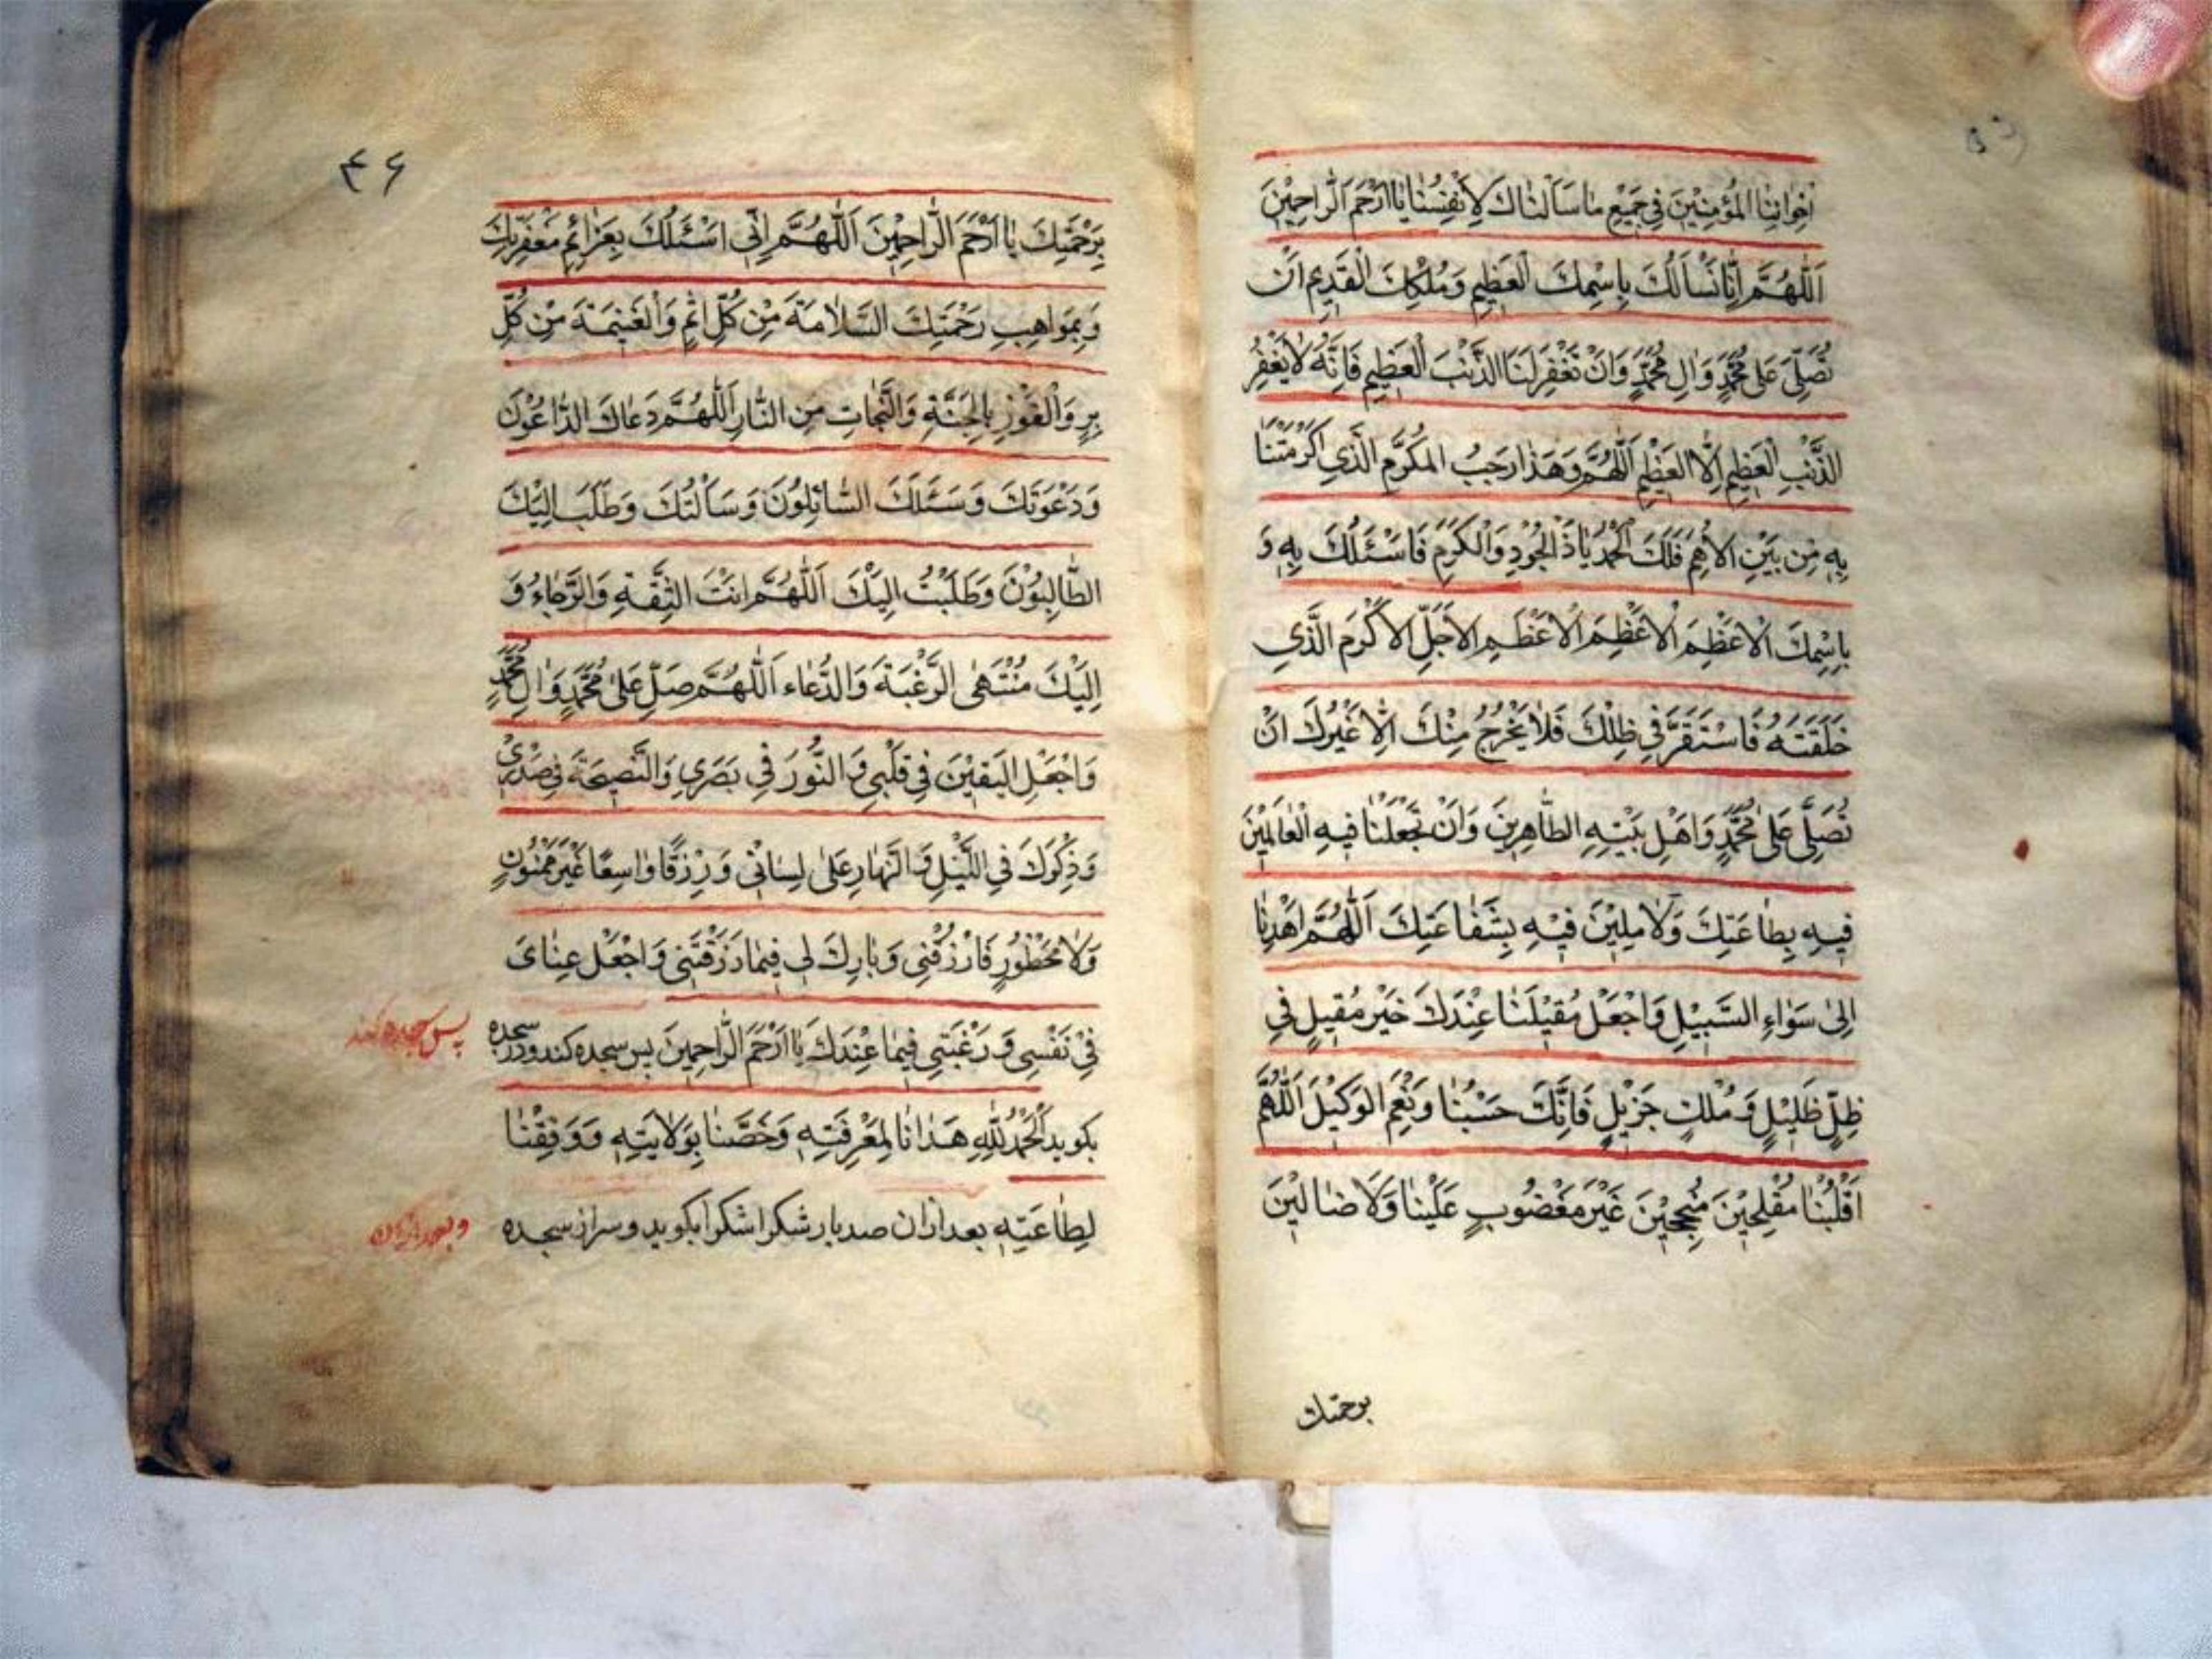 اِخْوانِنَا الْمُؤْمِنِيْنَ فِي جَمِيْعِ ما سَاَلْناكَ لِاَنْفُسِنٰا يٰا اَرْحَمَ الرّٰاحِمِيْنَ
اَللّٰهُمَّ اِنّٰا نَسْاَلُكَ بِاسْمِكَ الْعَظِيمِ وَمُلْكِكَ الْقَدِيمِ اَنْ
تُصَلِّيَ عَلىٰ مُحَمَّدٍ وَاٰلِ مُحَمَّدٍ وَاَنْ تَغْفِرَ لَنَا الذَّنْبَ الْعَظِيمَ فَاِنَّهُ لٰا يَغْفِرُ
الذَّنْبَ الْعَظِيمَ اِلَّا الْعَظِيْمُ اَللّٰهُمَّ وَهَذٰا رَجَبُ المُكَرَّمُ الَّذِي اَكْرَمْتَنٰا
بِهِ مِن بَيْنِ الاُمَمِ فَلَكَ الْحَمْدُ يٰا ذَا الْجُوْدِ وَالْكَرَمِ فَاَسْئَلُكَ بِهِ وَ
بِاِسْمِكَ الْاَعْظَمِ الْاَعْظَمِ الْاَعْظَمِ الْاَجَلِّ الْاَكْرَمِ الَّذِي
خَلَقَتَهُ فَاسْتَقَرَّ فِي ظِلِّكَ فَلٰا يَخْرُجُ مِنْكَ اِلٰى غَيْرِكَ اَنْ
تُصَلِّيَ عَلىٰ مُحَمَّدٍ وَاَهْلِ بَيْتِهِ الطّٰاهِرِينَ وَاَنْ تَجْعَلَنٰا فِيهِ الْعٰامِلِيْنَ
فِيهِ بِطٰاعَتِكَ وَلٰامِلِيْنَ فِيْهِ بِشَفٰاعَتِكَ اَللّٰهُمَّ اهْدِنٰا
اِلىٰ سَوٰاءِ السَّبِيْلِ وَاجْعَلْ مُقِيْلَنٰا عِنْدَكَ خَيْرَ مُقِيلٍ فِي
ظِلٍّ ظَلِيْلٍ وَ مُلْكٍ جَزِيْلٍ فَاِنَّكَ حَسْبُنٰا وَنِعْمَ الوَكِيْلَ اَللّٰهُمَّ
اَقْلِبْنٰا مُفْلِحِيْنَ مُنْجِحِيْنَ غَيْرَ مَغْضُوبٍ عَلَيْنٰا وَلَا ضٰالِّيْنَ
برحمتك
۴۶
بِرَحْمَتِكَ يٰا اَرْحَمَ الرّٰاحِمِيْنَ اَللّٰهُمَّ اِنِّي اَسْئَلُكَ بِعَزٰائِمِ مَغْفِرَتِكَ
وَبِمَوٰاهِبِ رَحْمَتِكَ السَّلٰامَةَ مِنْ كُلِّ اِثْمٍ وَالْغَنِيمَةَ مِنْ كُلِّ
بِرٍ وَالْفَوْزِ بِالْجَنَّةِ وَالنَّجٰاتِ مِنَ النّٰارِ اَللّٰهُمَّ دَعٰاكَ الدّٰاعُوْنَ
وَدَعَوْتُكَ وَسَئَلَكَ السّٰائِلُونَ وَسَاَلْتُكَ وَطَلَبَ اِلَيْكَ
الطّٰالِبُوْنَ وَطَلَبْتُ اِلَيْكَ اَللّٰهُمَّ اَنْتَ الثِّقَةِ وَالرَّجٰاءُ وَ
اِلَيْكَ مُنْتَهَى الرَّغْبَةَ وَالدُّعٰاء اَللّٰهُمَّ صَلِّ عَلىٰ مُحَمَّدٍ وَاٰلِ مُحَمَّدٍ
وَاجْعَلِ اليَقِيْنَ فِي قَلْبِي وَالنُّورَ فِي بَصَرِي وَالنَّصِيحَةَ فِي صَدْرِيْ
وَذِكْرَكَ فِي اللَّيْلِ وَالنَّهٰارِ عَلىٰ لِسٰانِيْ وَرِزْقًا وٰاسِعًا غَيْرَ مَمْنُونٍ
وَلٰا مَحْظُورٍ فَارْزُقْنِي وَبٰارِكَ لِي فِيمٰا رَزَقْتَنِي وَاجْعَلْ غِنٰايَ
فِيْ نَفْسِي وَ رَغْبَتِي فِيمٰا عِنْدَكَ يٰا اَرْحَمَ الرّٰاحِمِينَ پس سجده كند و در سجده
پس سجده كند
بكويد اَلْحَمْدُ لِلّٰهِ هَدٰانٰا لِمَعْرِفَتِهِ وَخَصَّنٰا بِوَلٰايَتِهِ وَوَفِقْنٰا
لِطٰاعَتِهِ بعد ازان صد بار شكرا شكرا بكويد و سر از سجده
و بعد ازان